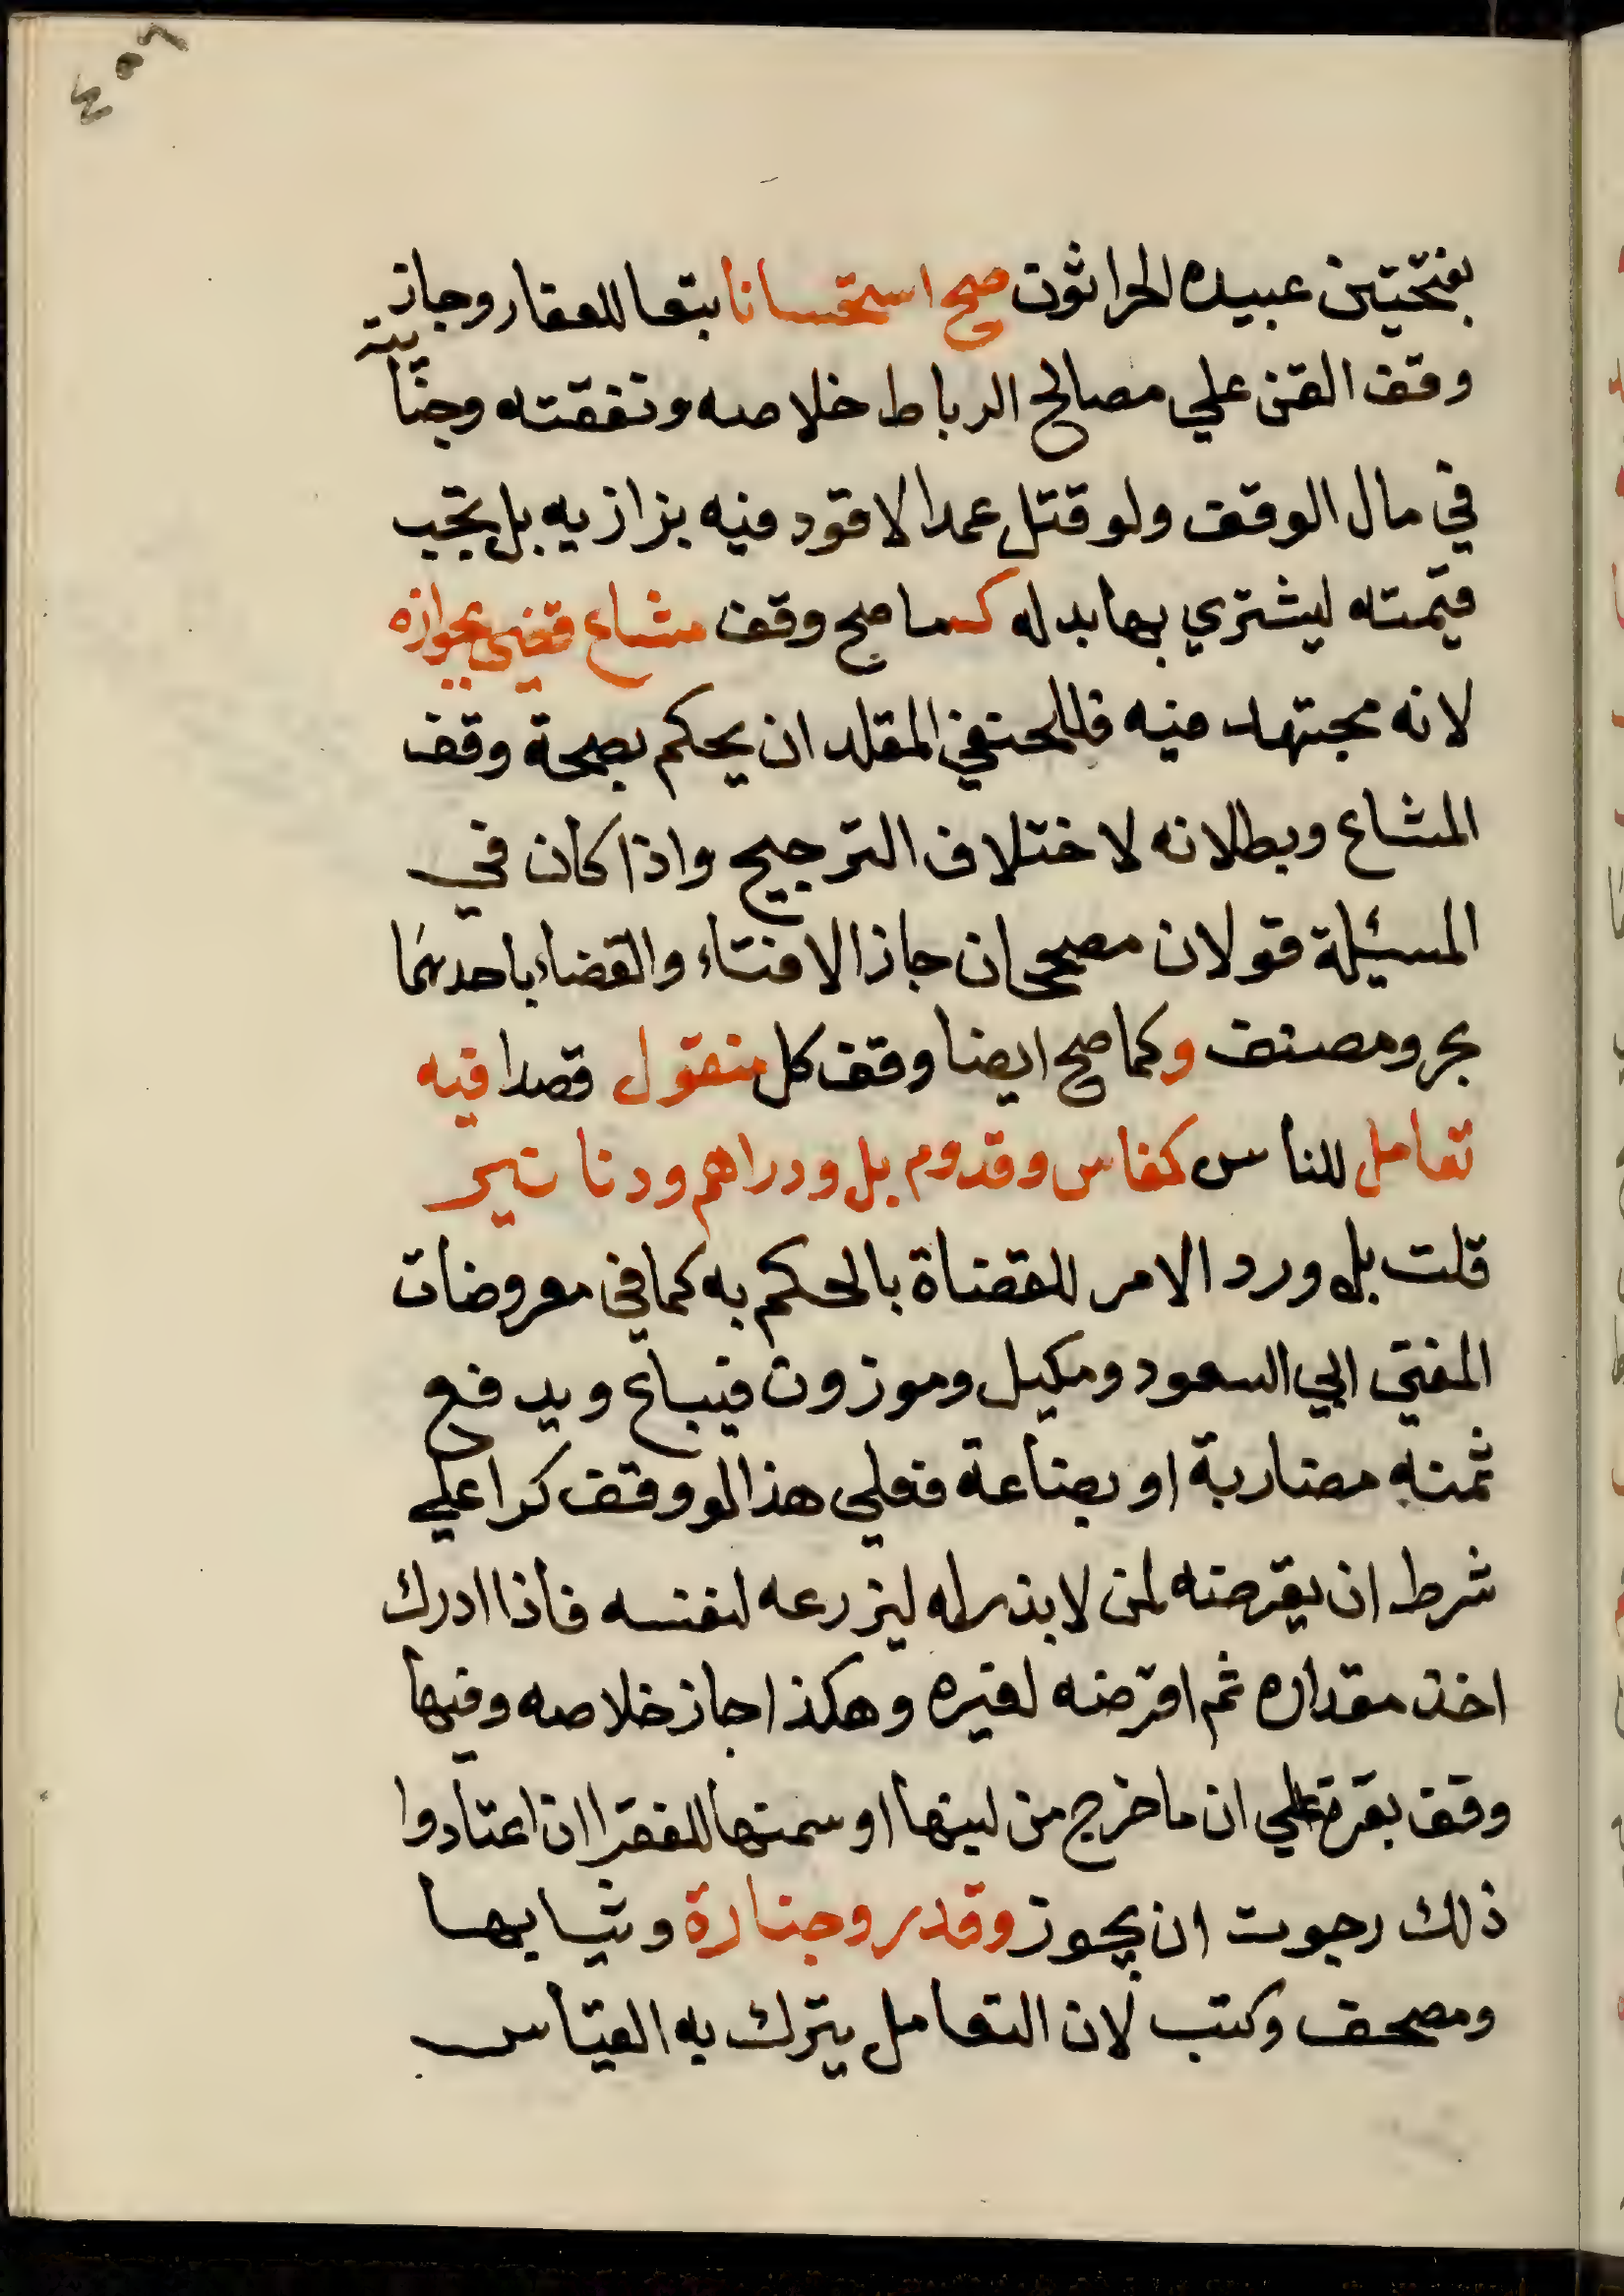 ٤٥٦
بفتحتين عبيده الحراثون صح استحسانا تبعا للعقار وجاز
وقف القن علي مصالح الرباط خلاصه ونفقته وجنايته
في مال الوقف ولو قتل عمدا لا قود فيه بزازيه بل تجب
قيمته ليشتري بها بدله كما صح وقف مشاع قضي بجوازه
لانه مجتهد فيه فللحنفي المقلد ان يحكم بصحة وقف
المشاع وبطلانه لاختلاف الترجيح واذا كان في
المسئلة قولان مصححان جاز الافتاء والقضاء باحدهما
بحر ومصنف وكما صح ايضا وقف كل منقول قصدا فيه
تعامل للناس كفاس وقدوم بل ودراهم ودنانير
قلت بل ورد الامر للقضاة بالحكم به كما في معروضات
المفتي ابي السعود ومكيل وموزون فيباع ويدفع
ثمنه مضاربة او بضاعة فعلي هذا لو وقف كرا علي
شرط ان يقرضه لمن لا بذر له ليزرعه لنفسه فاذا ادرك
اخذ مقداره ثم اقرضه لغيره وهكذا جاز خلاصه وفيها
وقف بقرة علي ان ما خرج من لبنها او سمنها للفقرا ان اعتادوا
ذلك رجوت ان يجوز وقدر وجنازة وثيابها
ومصحف وكتب لان التعامل يترك به القياس